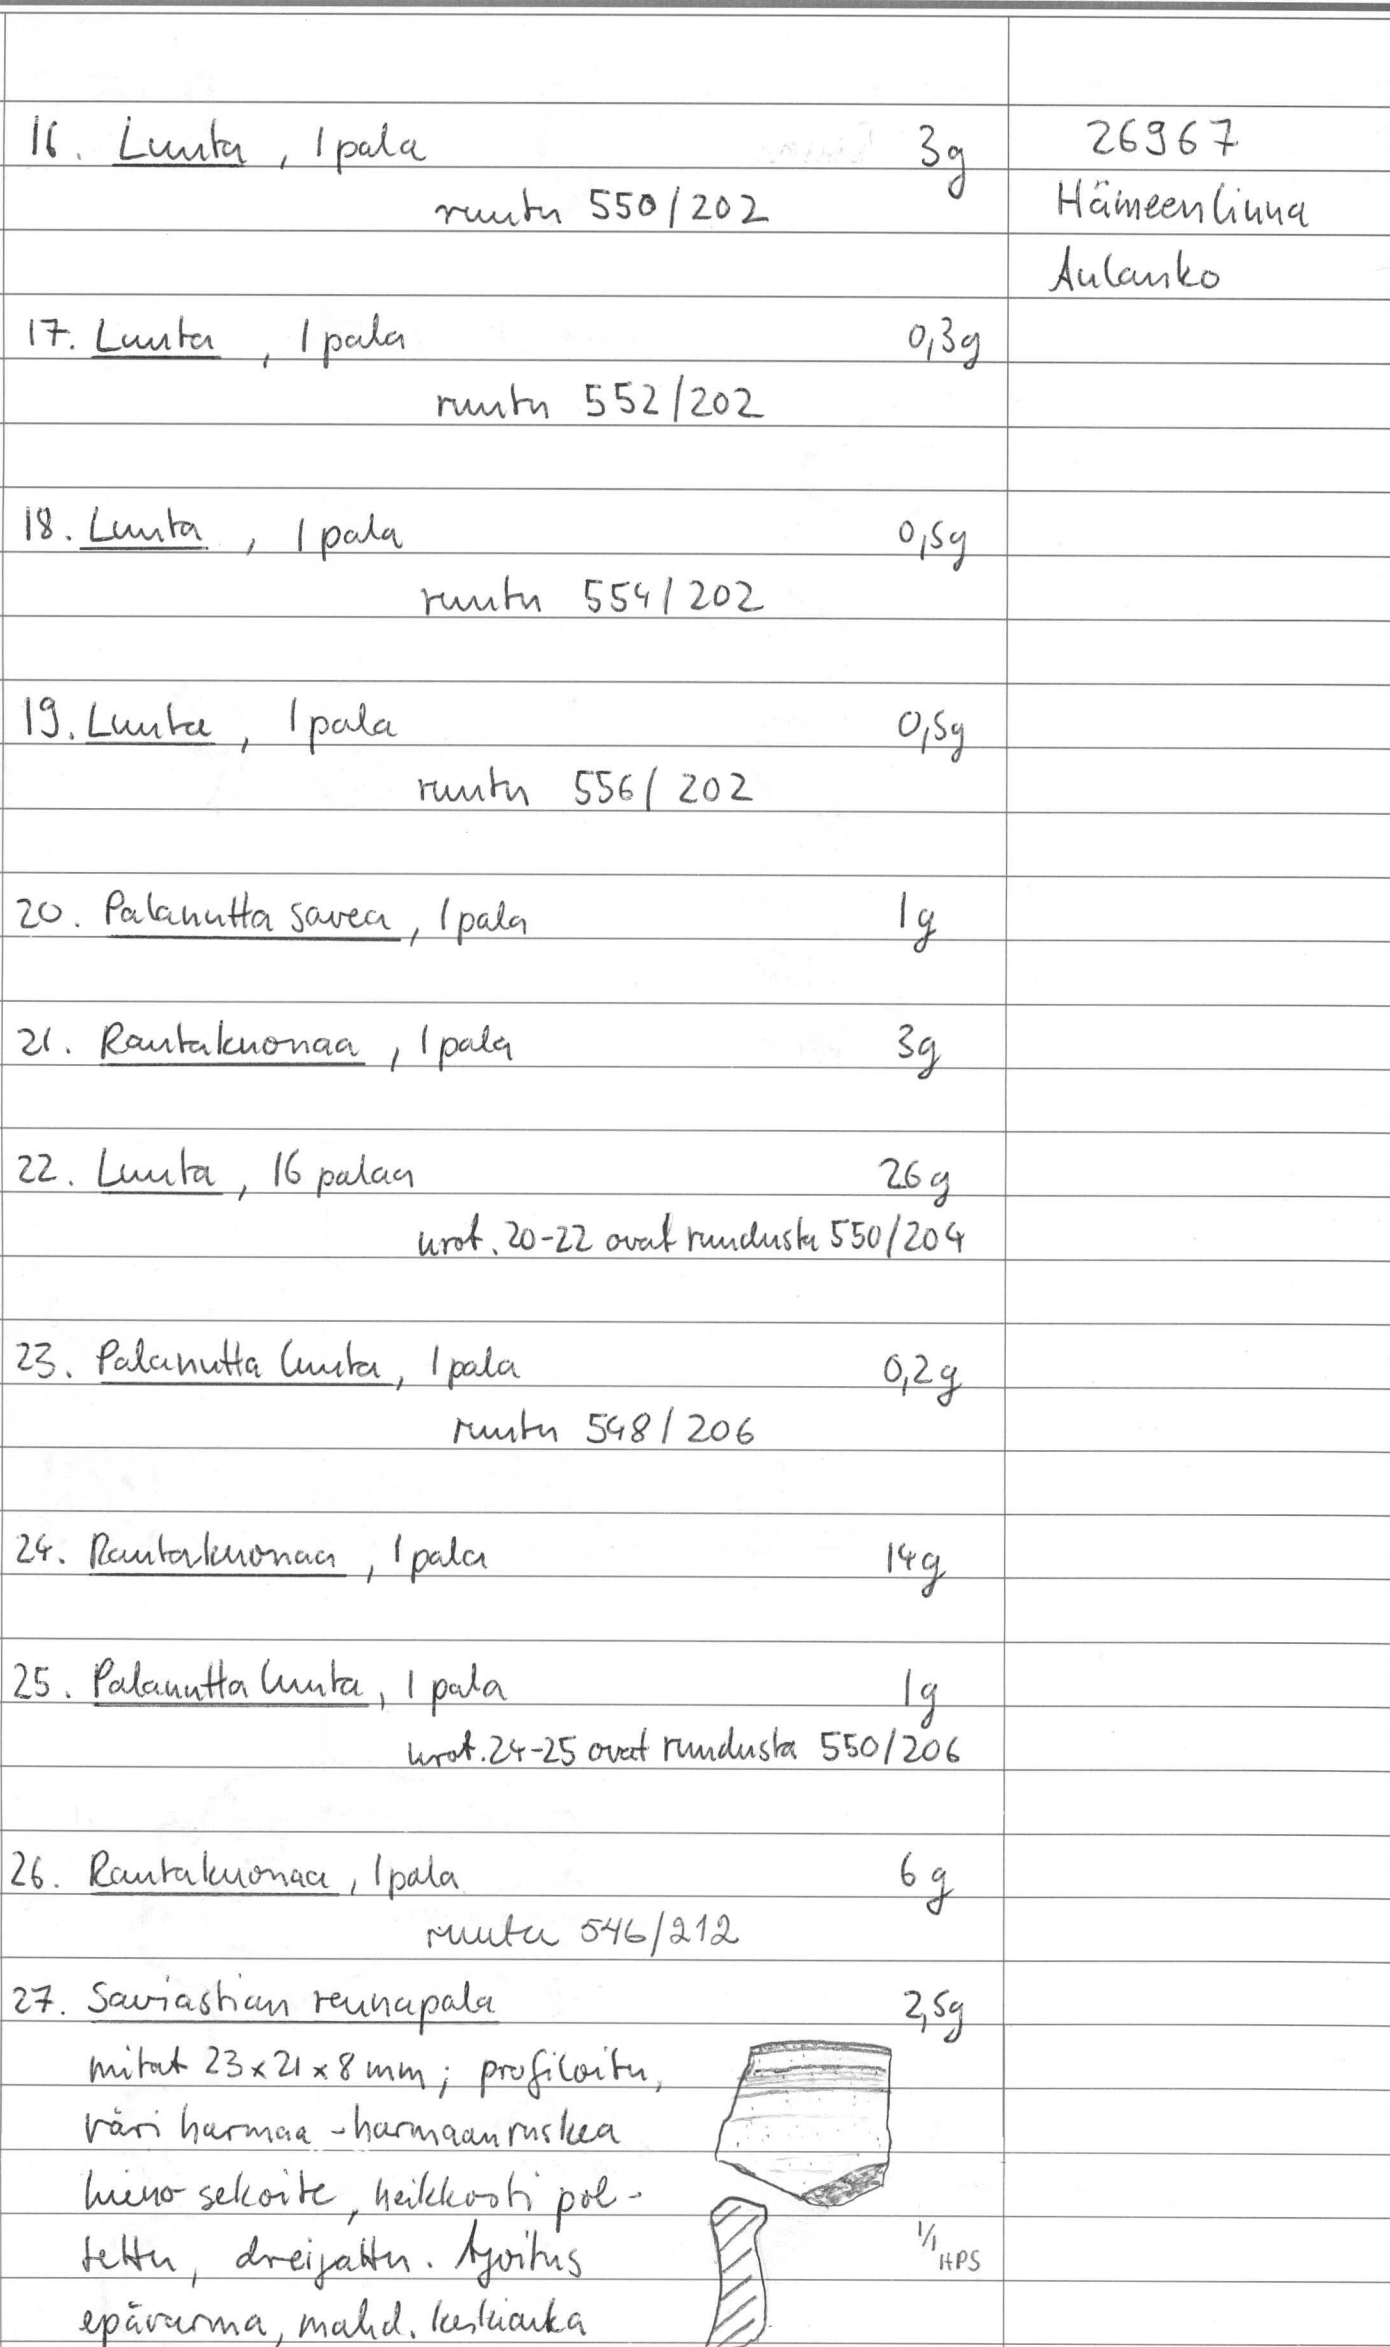 16. Luuta, 1 pala 3g
ruutu 550/202
26967
Hämeenlinna
Aulanko
17. Luuta, 1 pala 0,3g
ruutu 552/202
18. Luuta, 1 pala 0,5g
ruutu 554/202
19. Luuta, 1 pala 0,5g
ruutu 556/202
20. Palanutta savea, 1 pala 1g
21. Rautakuonaa, 1 pala 3g
22. Luuta, 16 palaa 26g
nrot. 20-22 ovat ruudusta 550/204
23. Palanutta luuta, 1 pala 0,2g
ruutu 548/206
24. Rautakuonaa, 1 pala 14g
25. Palanutta luuta, 1 pala 1g
nrot. 24-25 ovat ruudusta 550/206
26. Rautakuonaa, 1 pala 6g
ruutu 546/212
27. Saviastian reunapala 2,5g
mitat 23x21x8 mm; profiloitu,
väri harmaa - harmaanruskea
hieno sekoite, heikkosti pol-
tettu, dreijattu. Ajoitus
epävarma, mahd. keskiaika
1/1 HPS